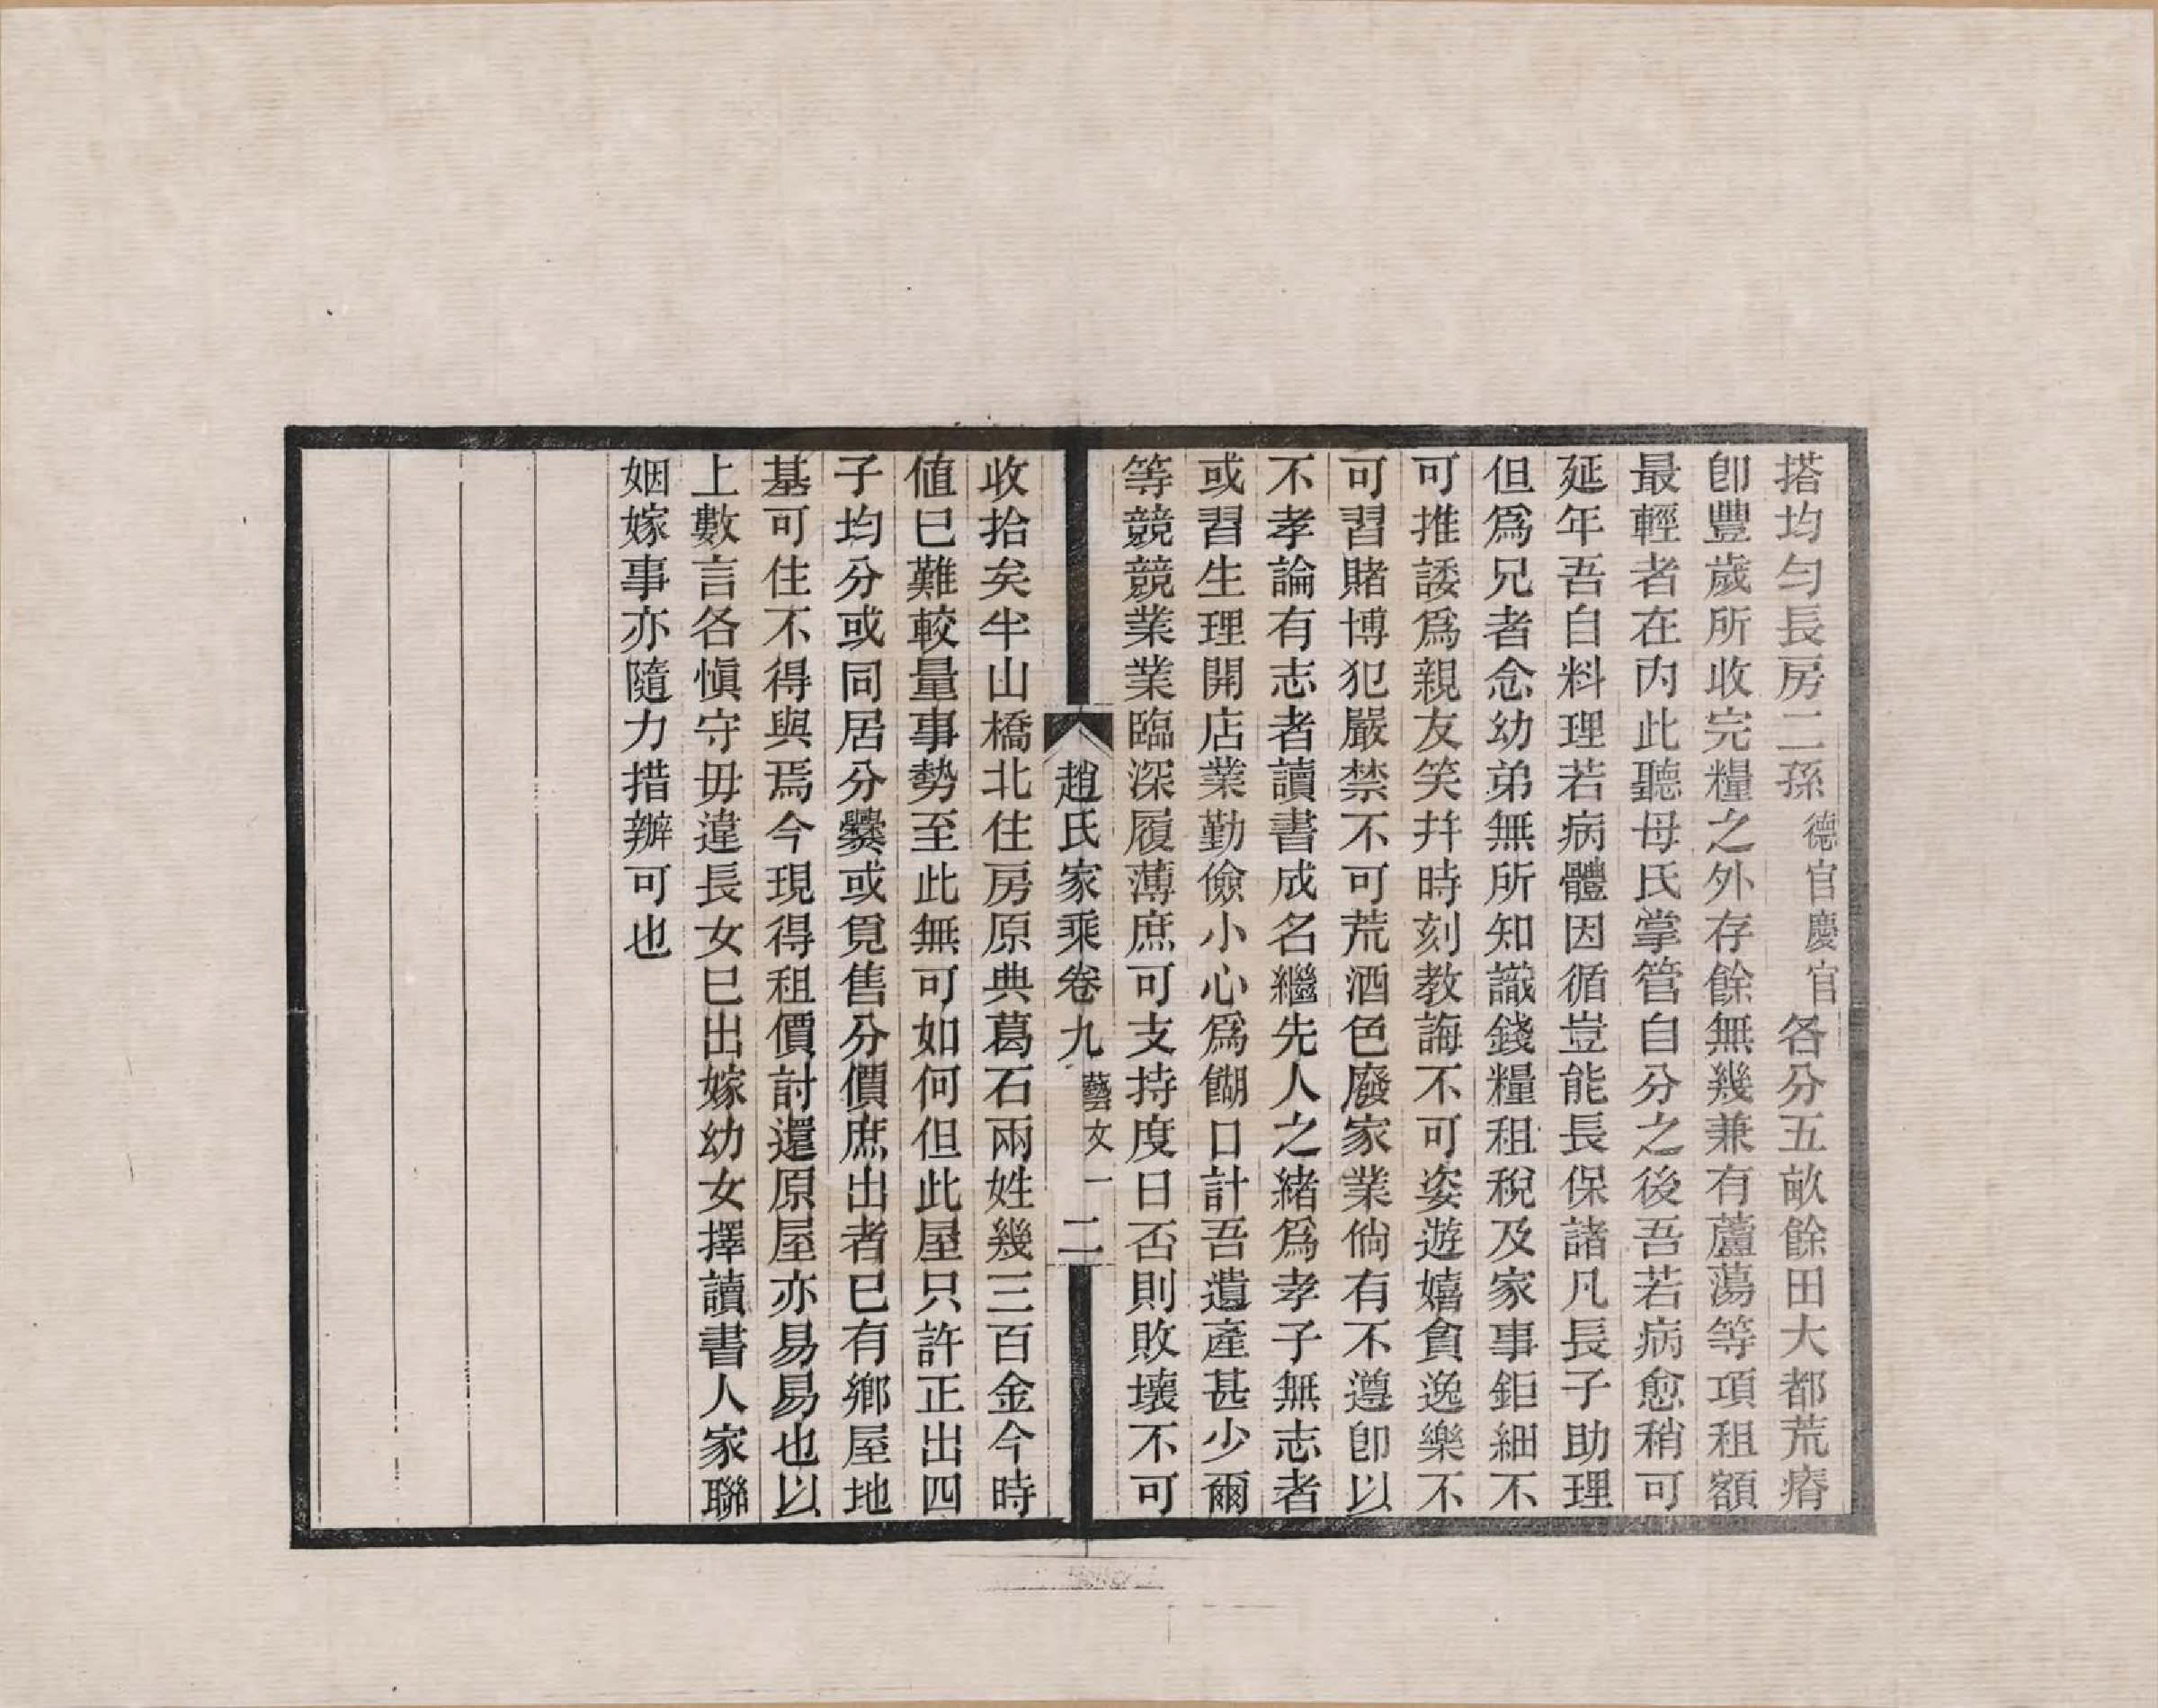 搭均勻長房二孫德官慶官各分五畝餘田大都荒瘠
卽豐歲所收完糧之外存餘無幾兼有蘆蕩等項租額
最輕者在內此聽母氏掌管自分之後吾若病愈稍可
延年吾自料理若病體因循豈能長保諸凡長子助理
但爲兄者念幼弟無所知識錢糧租稅及家事鉅細不
可推諉爲親友笑幷時刻教誨不可姿遊嬉貪逸樂不
可習賭博犯嚴禁不可荒酒色廢家業倘有不遵卽以
不孝論有志者讀書成名繼先人之緒爲孝子無志者
或習生理開店業勤儉小心爲餬口計吾遺產甚少爾
等競競業業臨深履薄庶可支持度日否則敗壞不可
趙氏家乘卷九 藝文一 二
收拾矣半山橋北住房原典葛石兩姓幾三百金今時
値已難較量事勢至此無可如何但此屋只許正出四
子均分或同居分爨或覓售分價庶出者已有鄉屋地
基可住不得與焉今現得租價討還原屋亦易易也以
上數言各愼守毋違長女已出嫁幼女擇讀書人家聯
姻嫁事亦隨力措辦可也